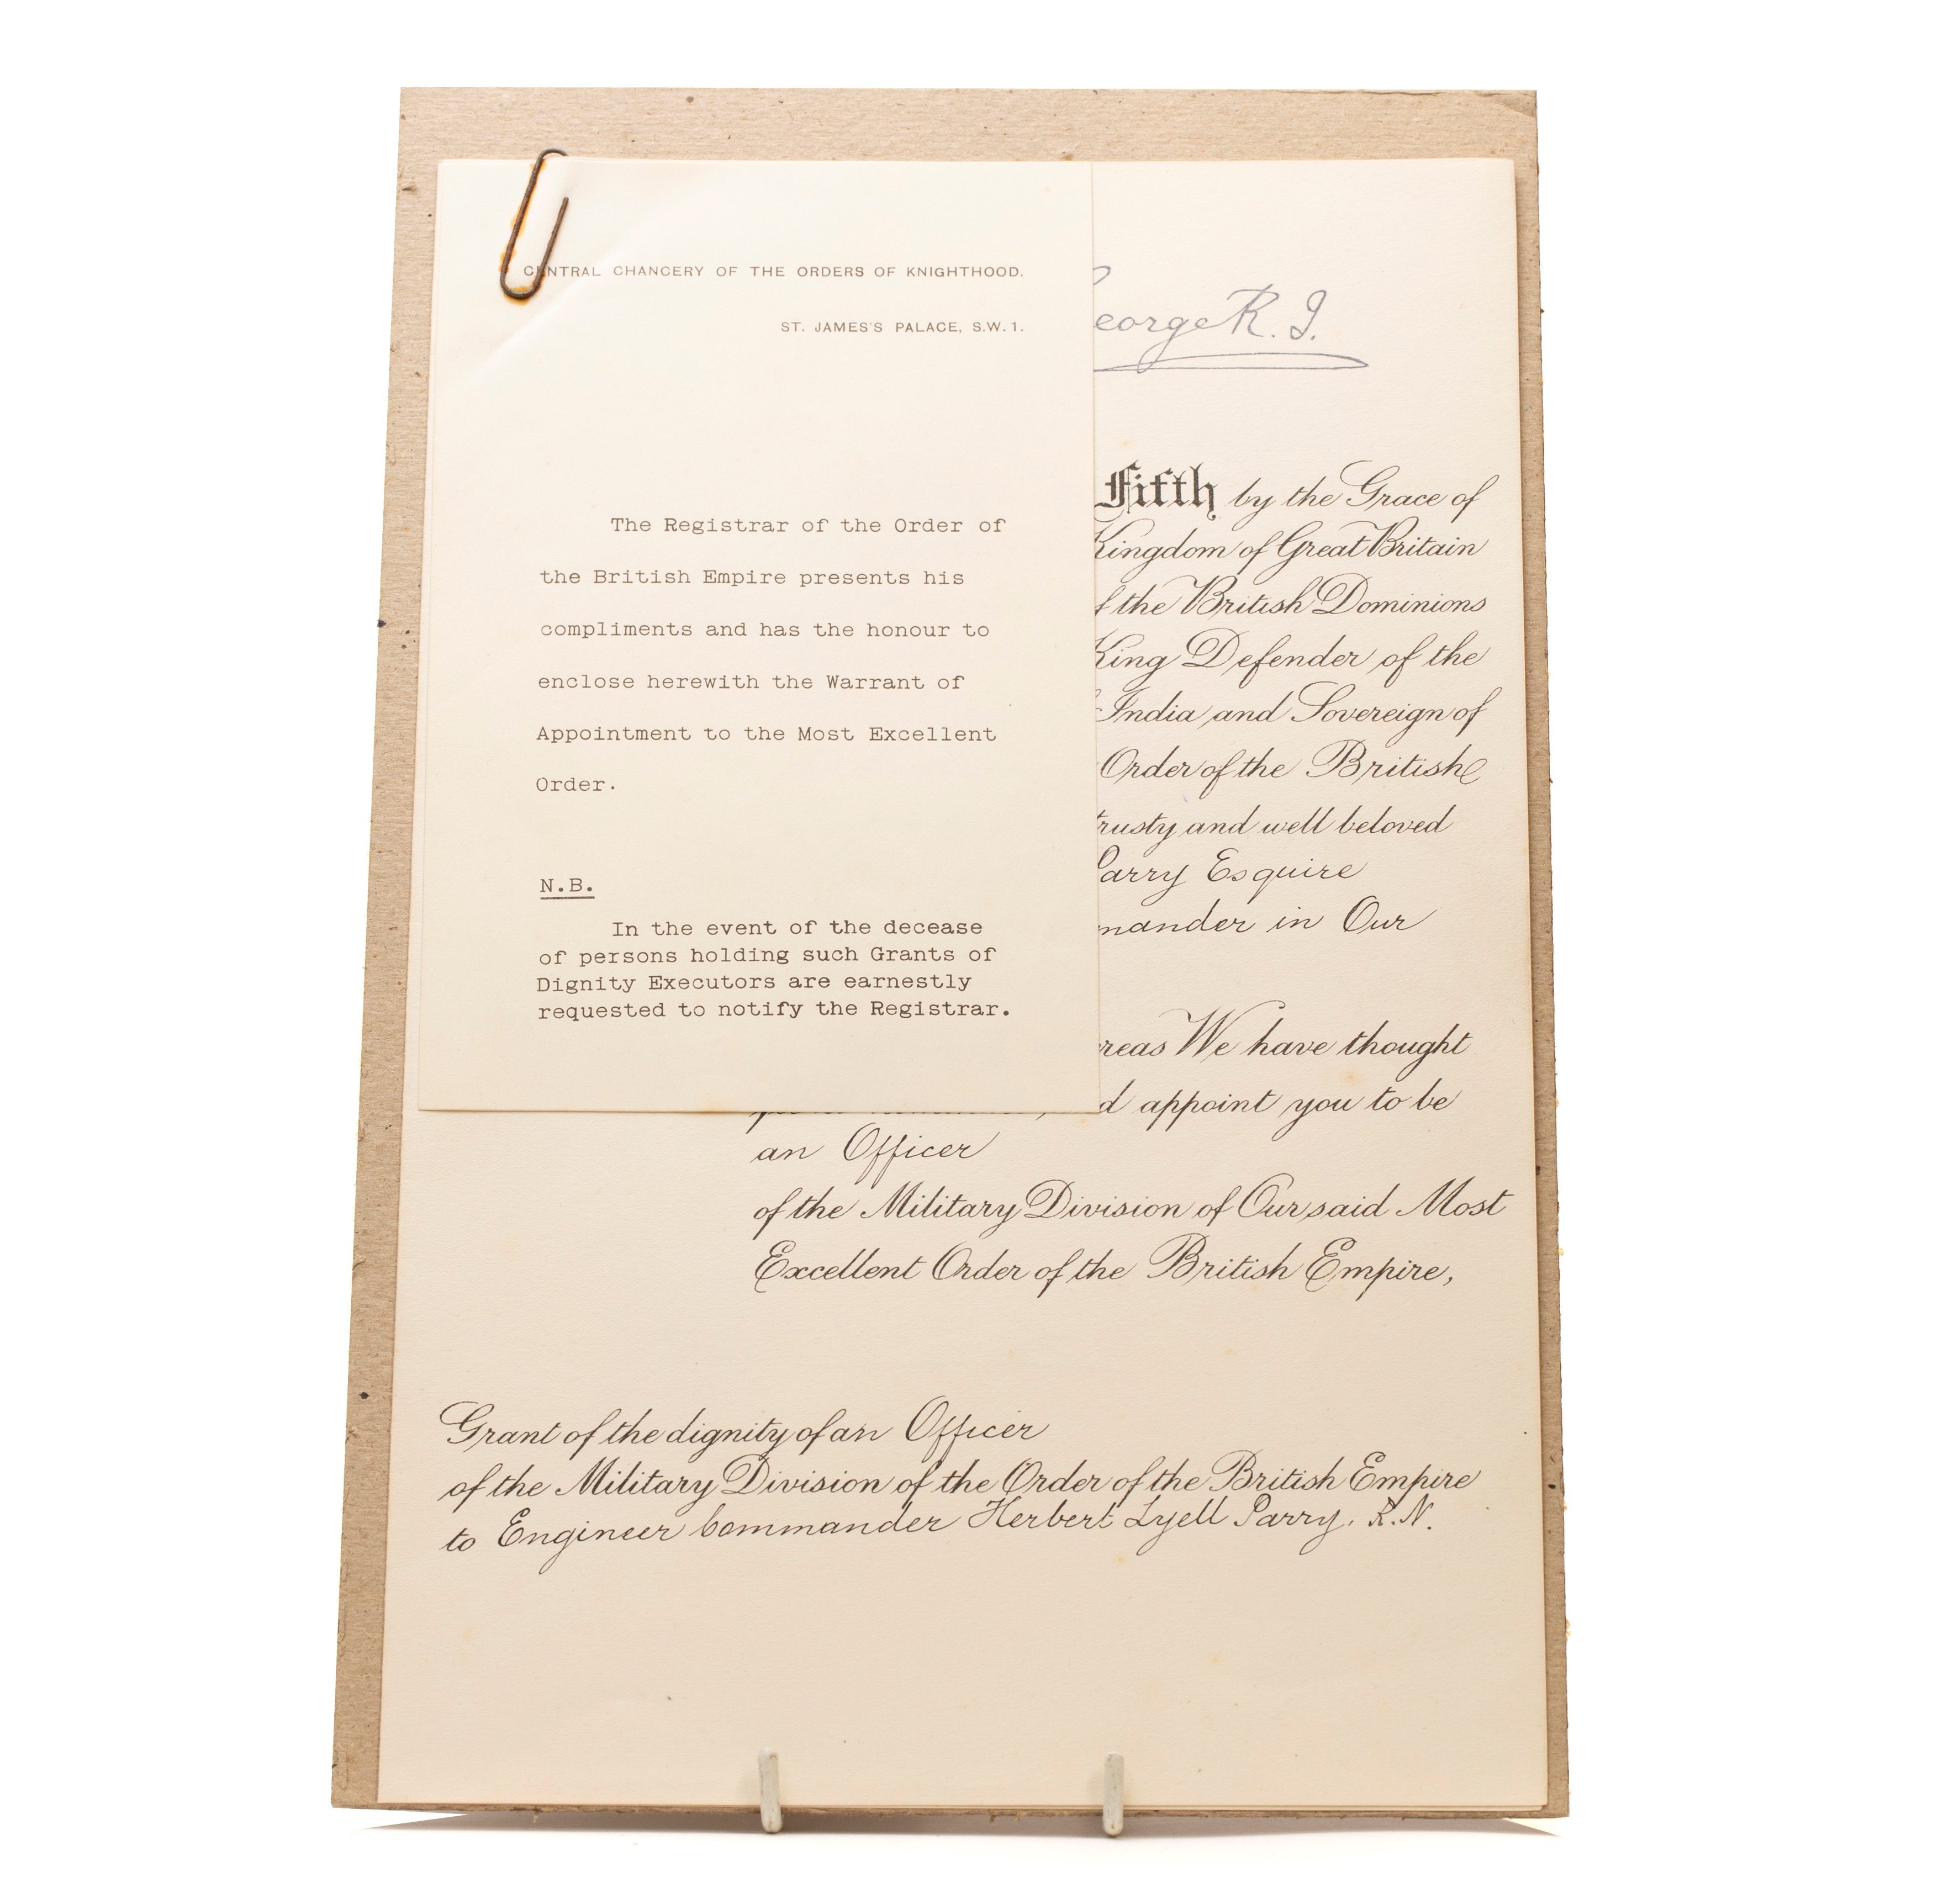 CENTRAL CHANCERY OF THE ORDERS OF KNIGHTHOOD.
ST. JAMES'S PALACE, S.W.1.
The Registrar of the Order of
the British Empire presents his
compliments and has the honour to
enclose herewith the Warrant of
Appointment to the Most Excellent
Order.
N.B.
In the event of the decease
of persons holding such Grants of
Dignity Executors are earnestly
requested to notify the Registrar.
eorge R. I.
Fifth by the Grace of
Kingdom of Great Britain
f the British Dominions
King Defender of the
India and Sovereign of
Order of the British
trusty and well beloved
Parry Esquire
mander in Our
reas We have thought
d appoint you to be
an Officer
of the Military Division of Our said Most
Excellent Order of the British Empire,
Grant of the dignity of an Officer
of the Military Division of the Order of the British Empire
to Engineer Commander Herbert Lyell Parry, R.N.